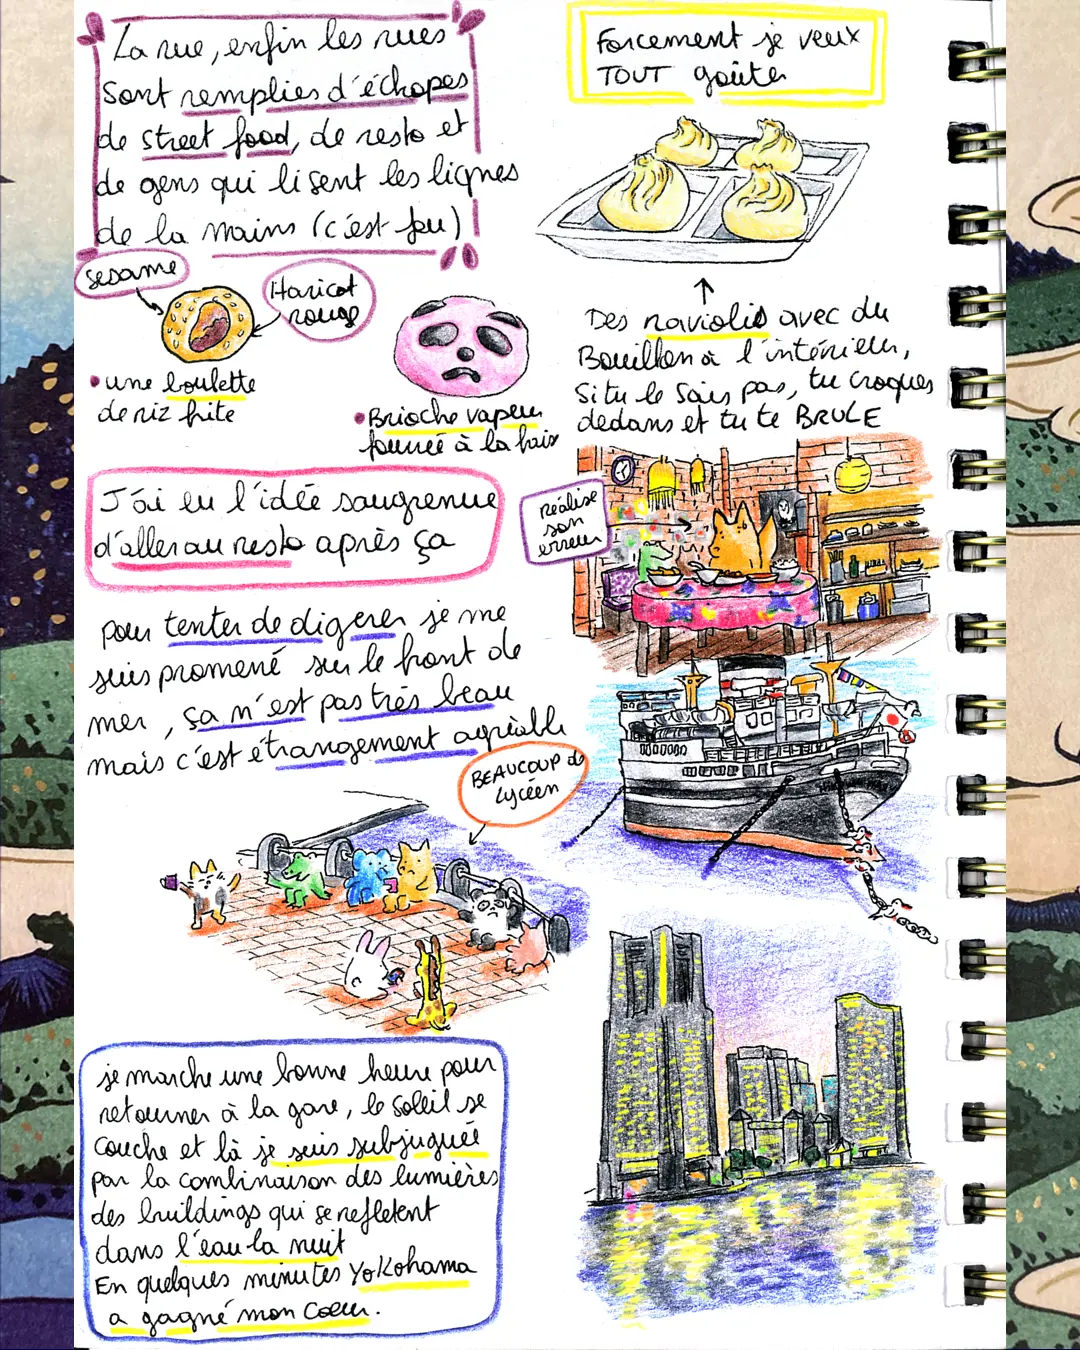 La rue, enfin les rues
sont remplies d'échopes
de street food, de resto et
de gens qui lisent les lignes
de la mains (c'est fou)
Forcement je veux
TOUT goûter
sesame
Haricot
rouge
• une boulette
de riz frite
• Brioche vapeur
fourrée à la haix
Des raviolis avec du
Bouillon à l'intérieur,
Si tu le sais pas, tu croques
dedans et tu te BRULE
J'ai eu l'idée saugrenue
d'aller au resto après ça
réalise
son
erreur
pour tenter de digerer je me
suis promené sur le front de
mer, ça n'est pas très beau
mais c'est étrangement agréable
BEAUCOUP de
lycéen
je marche une bonne heure pour
retourner à la gare, le soleil se
couche et là je suis subjuguée
par la combinaison des lumières
des buildings qui se refletent
dans l'eau la nuit
En quelques minutes Yokohama
a gagné mon coeur.